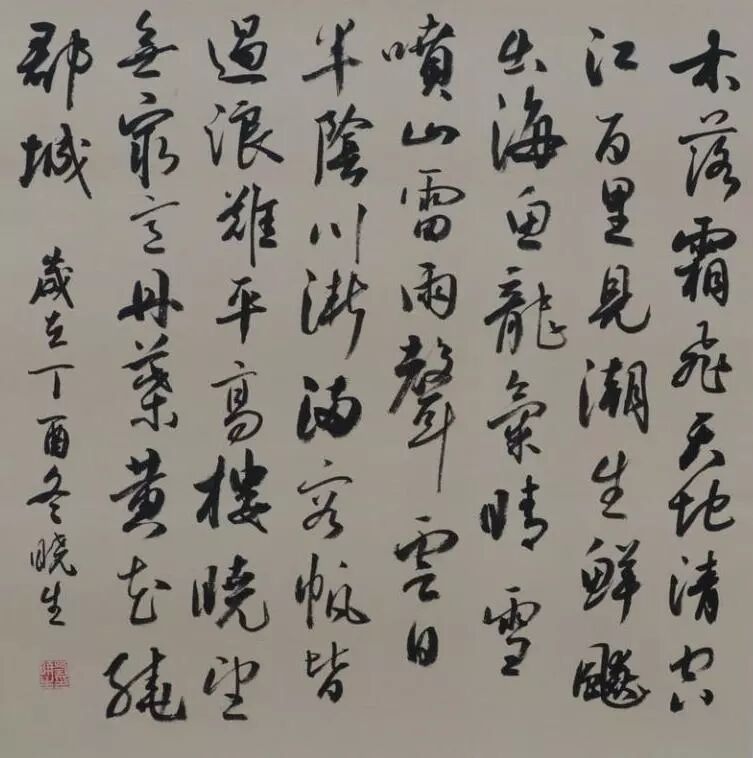 木落霜飛天地清空
江百里見潮生鮮飈
出海魚龍氣晴雪
噴山雷雨聲雲日
半陰川漸滿客帆皆
過浪難平高樓曉望
無窮意丹葉黃花繞
郡城
歲在丁酉冬晓生